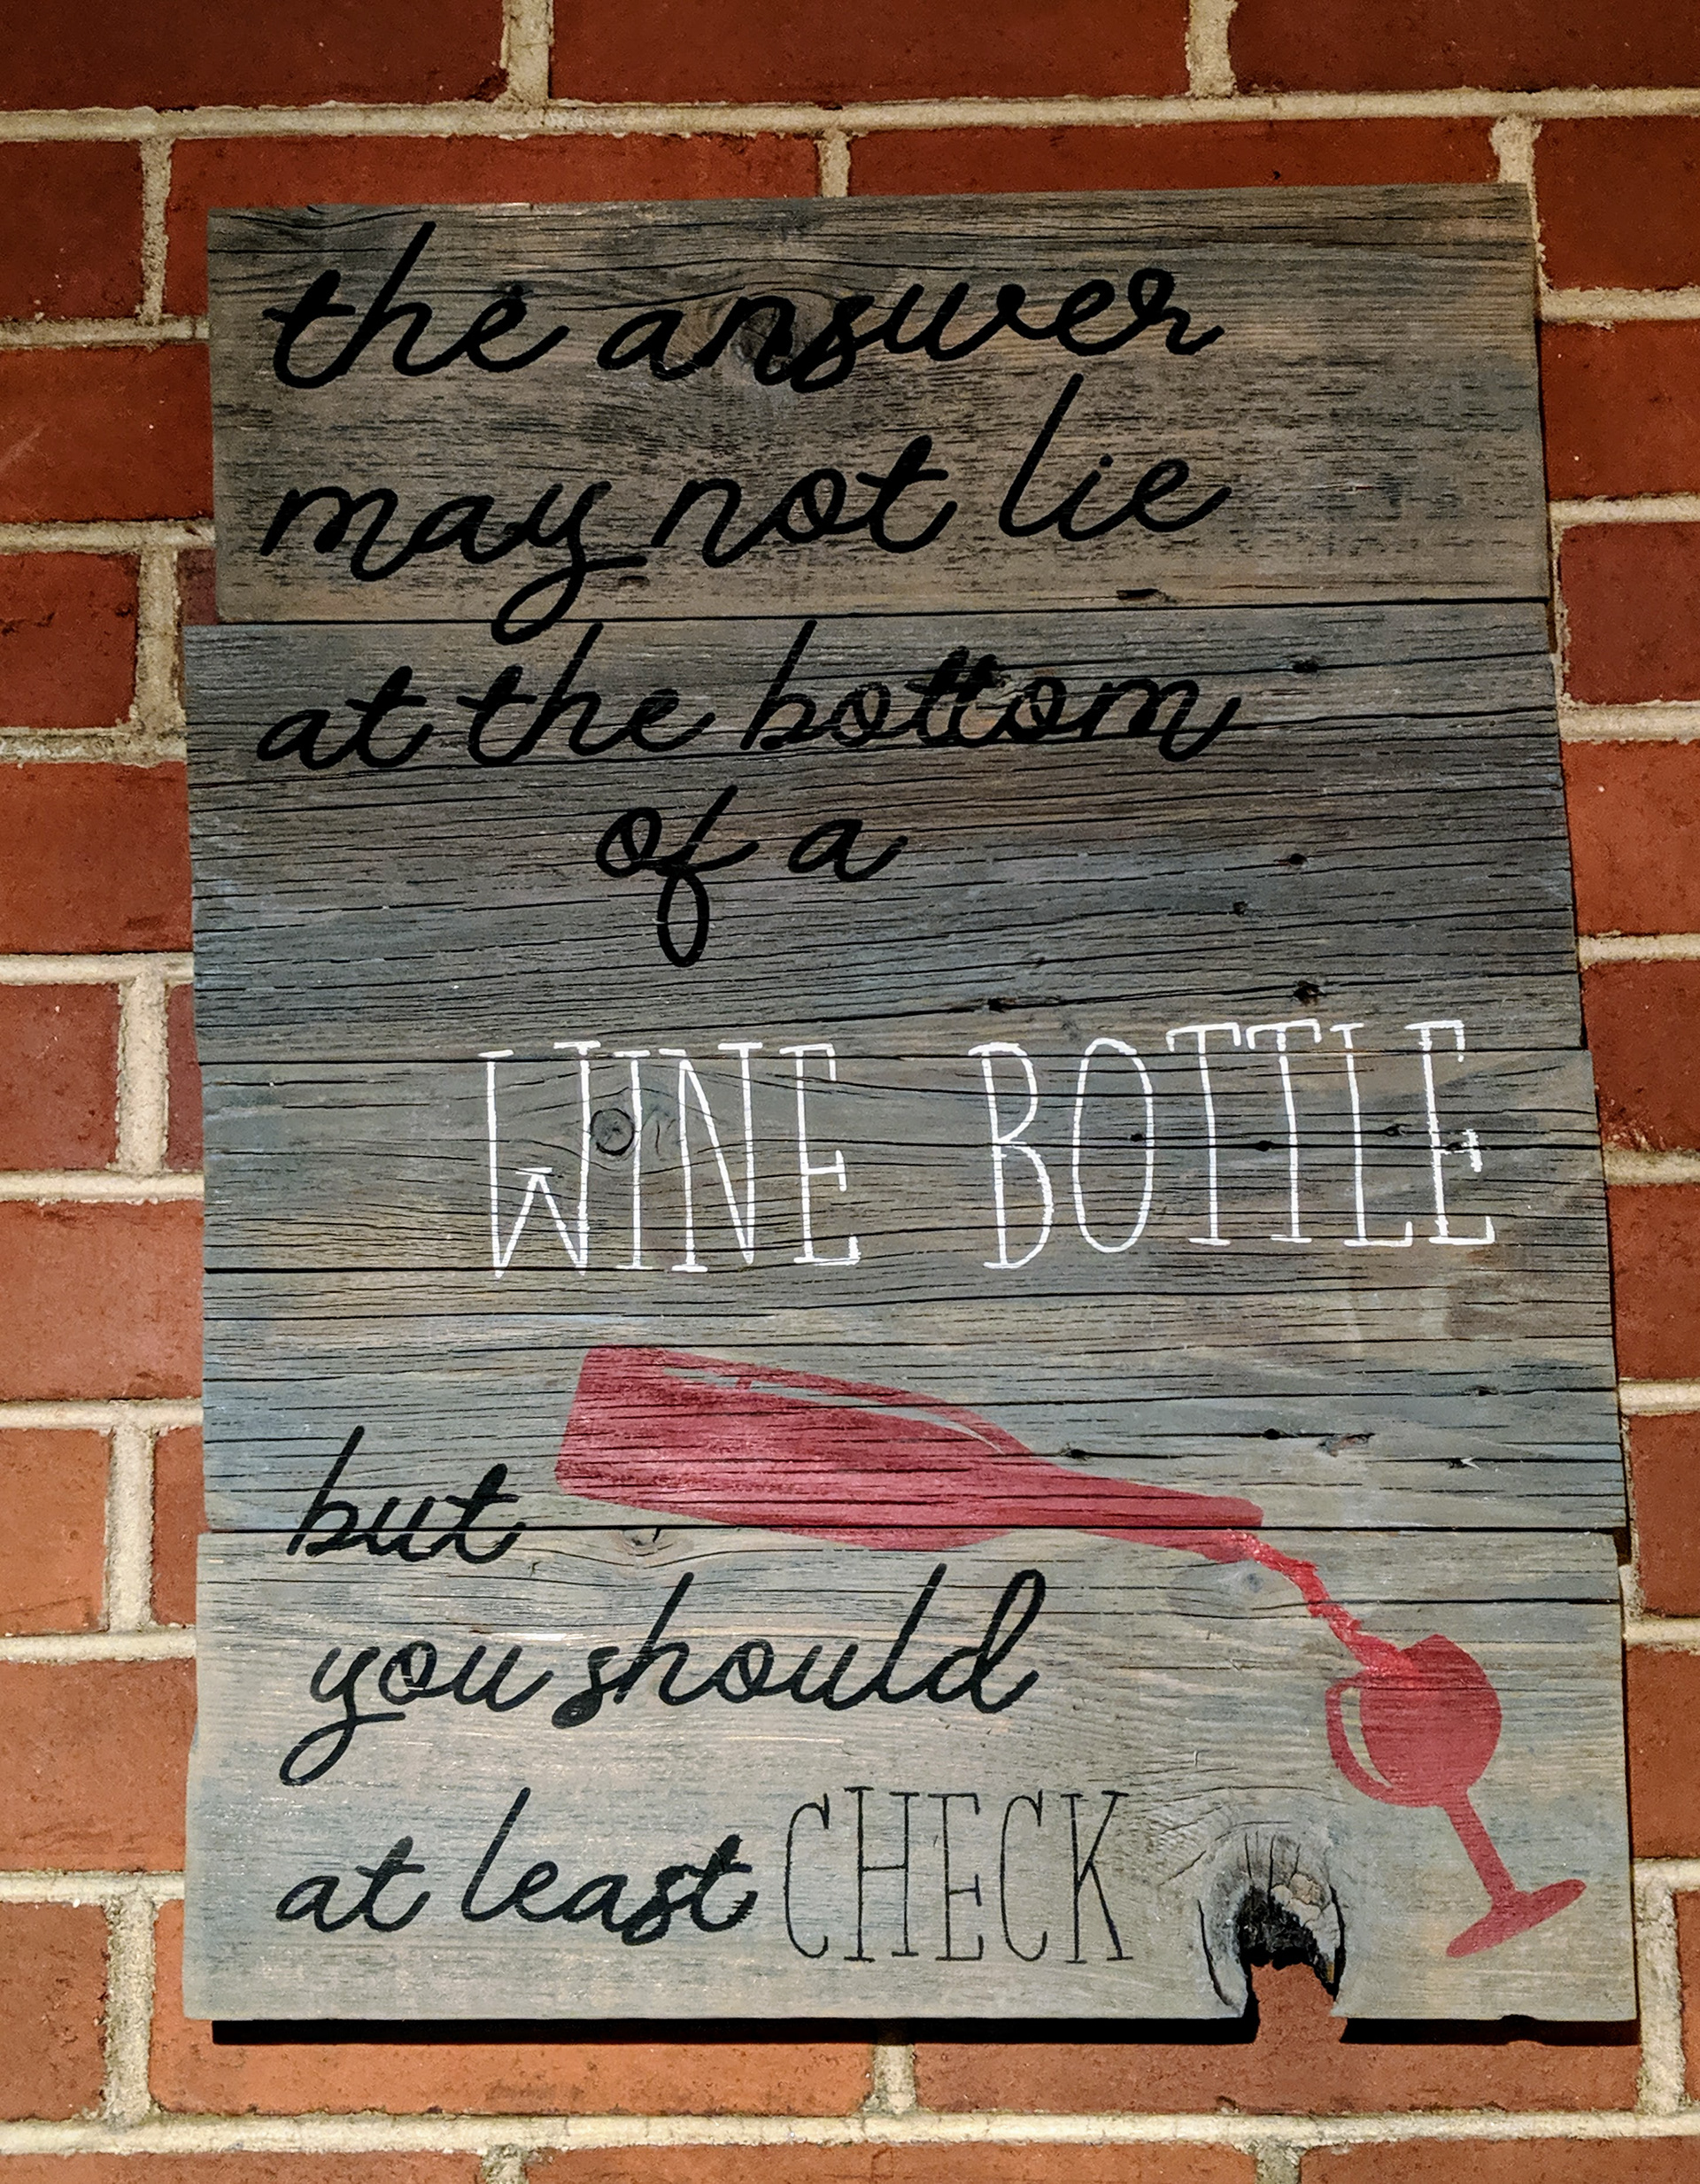 the answer
may not lie
at the bottom
of a
WINE BOTTLE
but
you should
at least CHECK